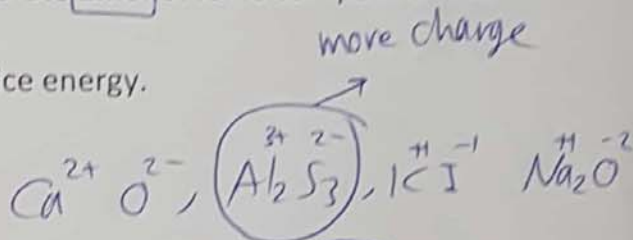 more charge
ce energy.
Ca²⁺ O²⁻, Al₂³⁺ S₃²⁻, K⁺¹ I⁻¹ Na₂⁺¹ O⁻²